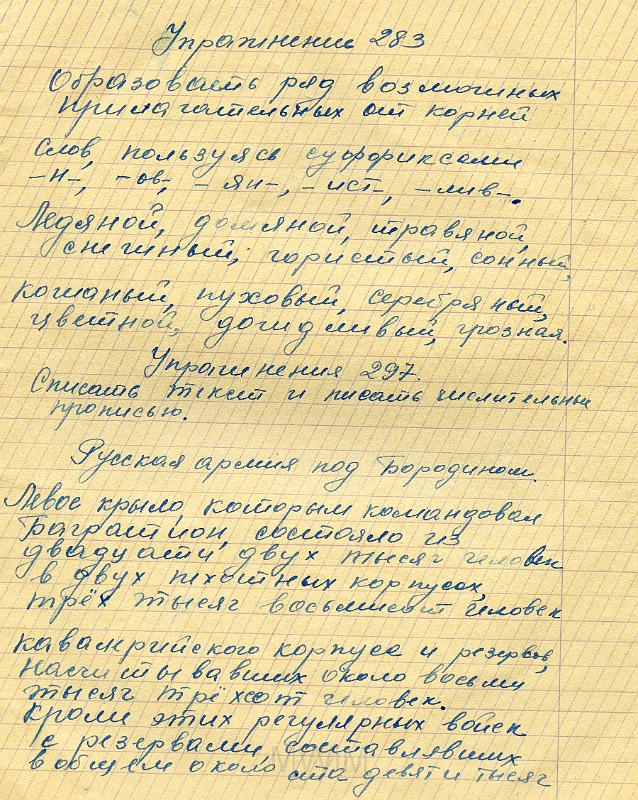 Упражнение 283
Образовать ряд возможных
прилагательных от корней
слов, пользуясь суффиксами
-н-, -ов-, -ян-, -ист-, -лив-.
Ледяной, домяной, травяной,
снежный, гористый, сонный,
кожаный, пуховый, серебряный,
цветной, дождливый, грозная.
Упражнения 297.
Списать текст и писать числительные
прописью.
Русская армия под Бородином.
Левое крыло, которым командовал
Багратион, состояло из
двадцати двух тысяч человек
в двух пехотных корпусах,
трёх тысяч восьмисот человек
кавалерийского корпуса и резервов,
насчитывавших около восьми
тысяч трёхсот человек.
Кроме этих регулярных войск
с резервами, составлявших
в общем около ста девяти тысяч